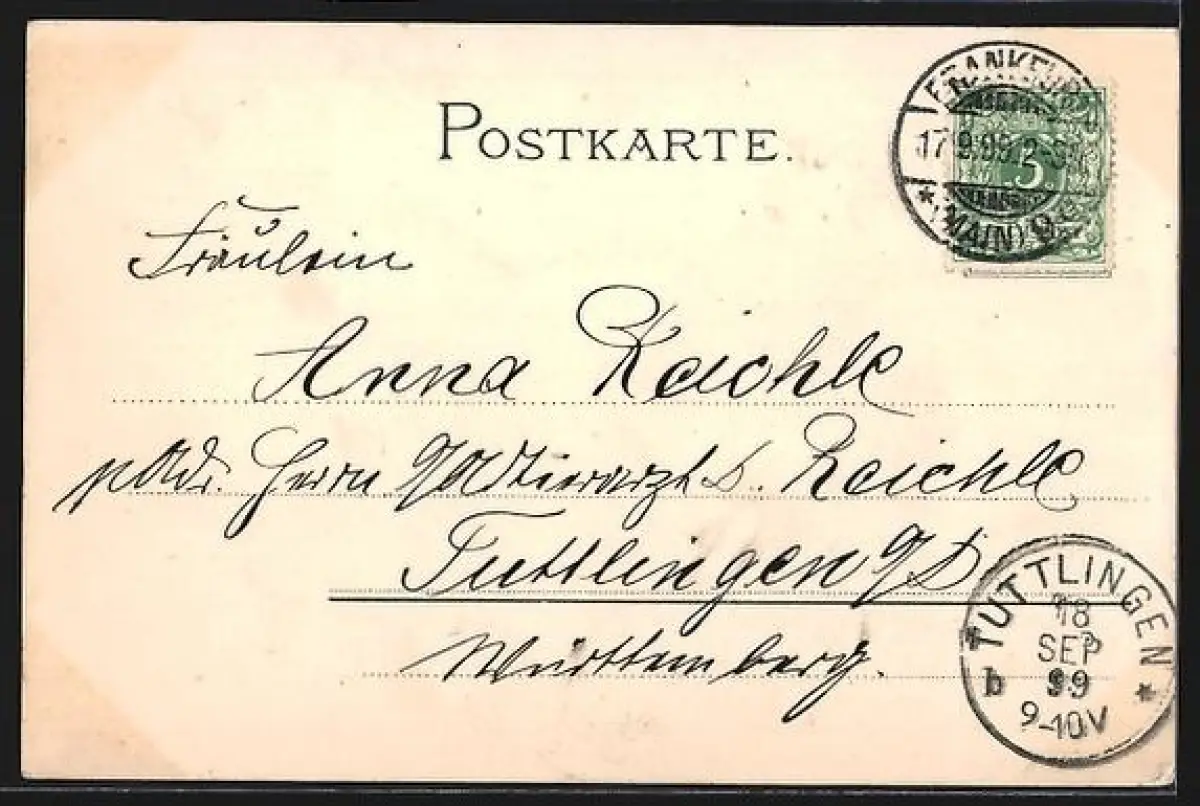 POSTKARTE.
FRANKFUR
17.9.99. 2-3
* (MAIN)
5
Fräulein
Anna Reichle
p Adr. Herrn Tierarzt Reichle
Tuttlingen a/D
Württemberg.
TUTTLINGEN *
18
SEP
b 99
9-10V